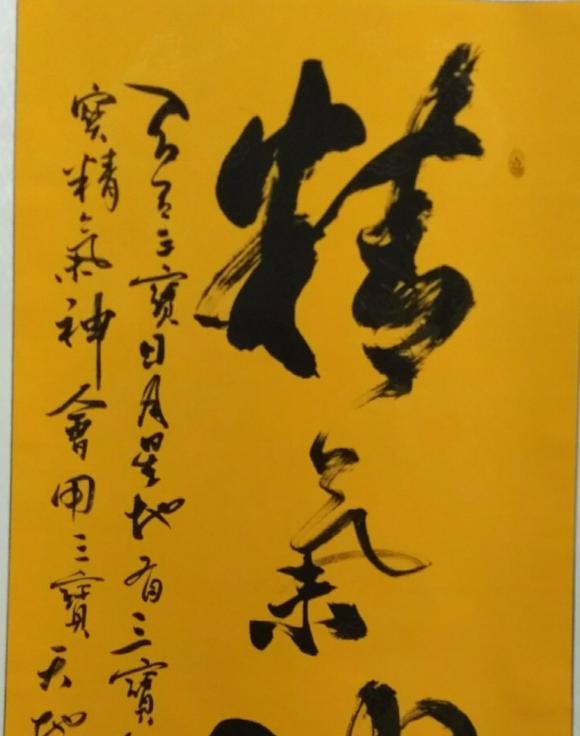 精氣
天有三寶日月星地有三寶
寶精氣神會用三寶天地